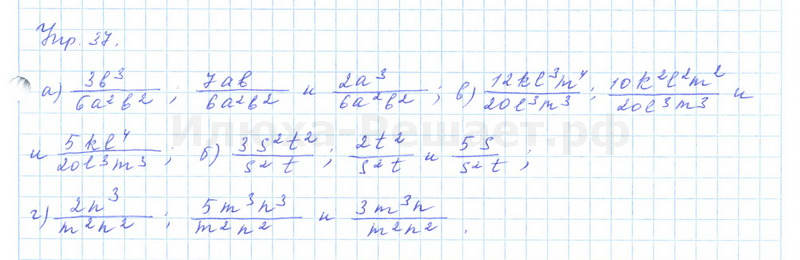 Упр. 37.
а) 3b³/6a²b² ; 7ab/6a²b² и 2a³/6a²b² ; в) 12kl³m⁴/20l³m³ ; 10k²l²m²/20l³m³ и
и 5kl⁴/20l³m³ ; б) 3s²t²/s²t ; 2t²/s²t и 5s/s²t ;
г) 2n³/m²n² ; 5m³n³/m²n² и 3m³n/m²n² .
Илюха-Решает.рф